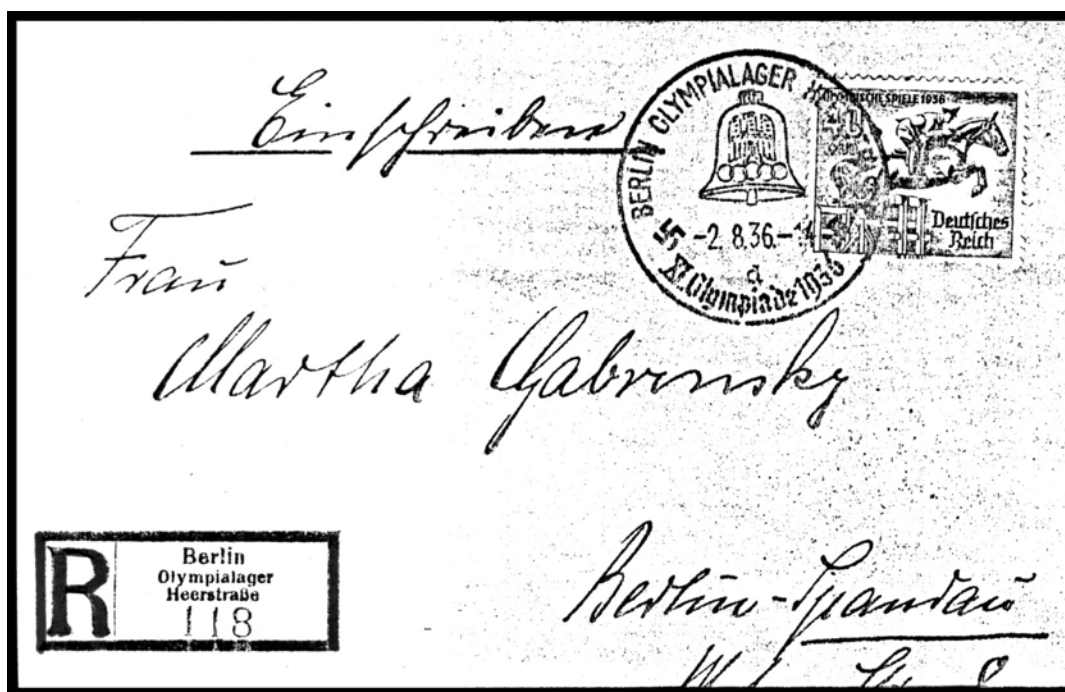 Einschreiben
BERLIN OLYMPIALAGER
-2.8.36.-
d
XI. Olympiade 1936
OLYMPISCHE SPIELE 1936
40
Deutsches
Reich
Frau
Martha Gabrensky
R
Berlin
Olympialager
Heerstraße
118
Berlin-Spandau